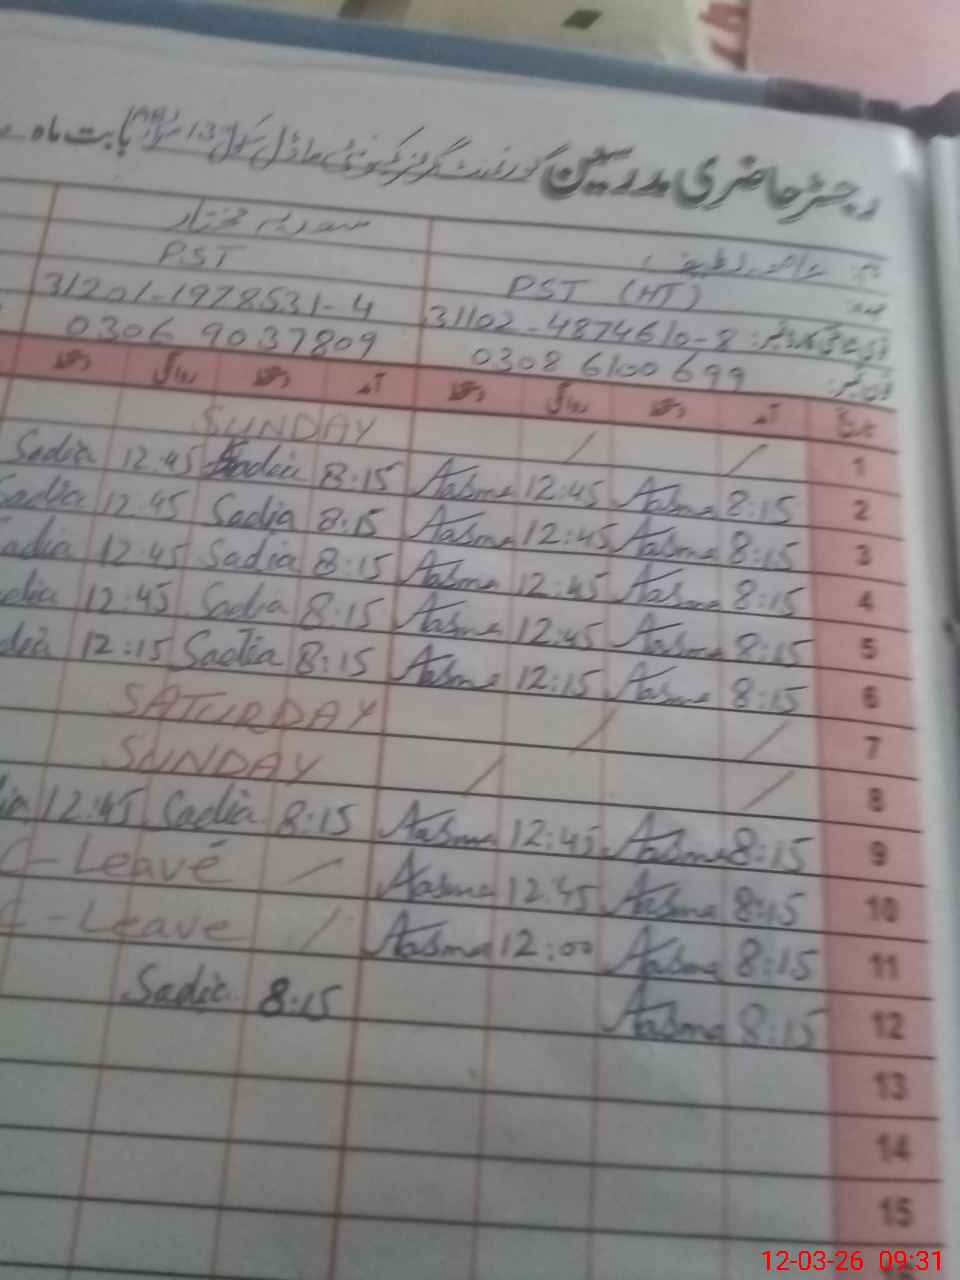 رجسٹر حاضری مدرسین گورنمنٹ گرلز کمیونٹی ماڈل سکول 13 بابت ماہ
نام:
PST
عہدہ: PST (HT)
قومی شناختی کارڈ نمبر: 31102-4874610-8 31201-1978531-4
فون نمبر: 0308 6100 699 0306 9037809
تاریخ آمد دستخط روانگی دستخط آمد دستخط روانگی دستخط
1 / / SUNDAY
2 8:15 Aasma 12:45 Aasma 8:15 Sadia 12:45 Sadia
3 8:15 Aasma 12:45 Aasma 8:15 Sadia 12:45 Sadia
4 8:15 Aasma 12:45 Aasma 8:15 Sadia 12:45 adia
5 8:15 Aasma 12:45 Aasma 8:15 Sadia 12:45 dia
6 8:15 Aasma 12:15 Aasma 8:15 Sadia 12:15 dia
7 / / SATURDAY
8 / / SUNDAY
9 8:15 Aasma 12:45 Aasma 8:15 Sadia 12:45 ia
10 8:15 Aasma 12:45 Aasma / C-Leave
11 8:15 Aasma 12:00 Aasma / C-Leave
12 8:15 Aasma 8:15 Sadia
13
14
15
12-03-26 09:31